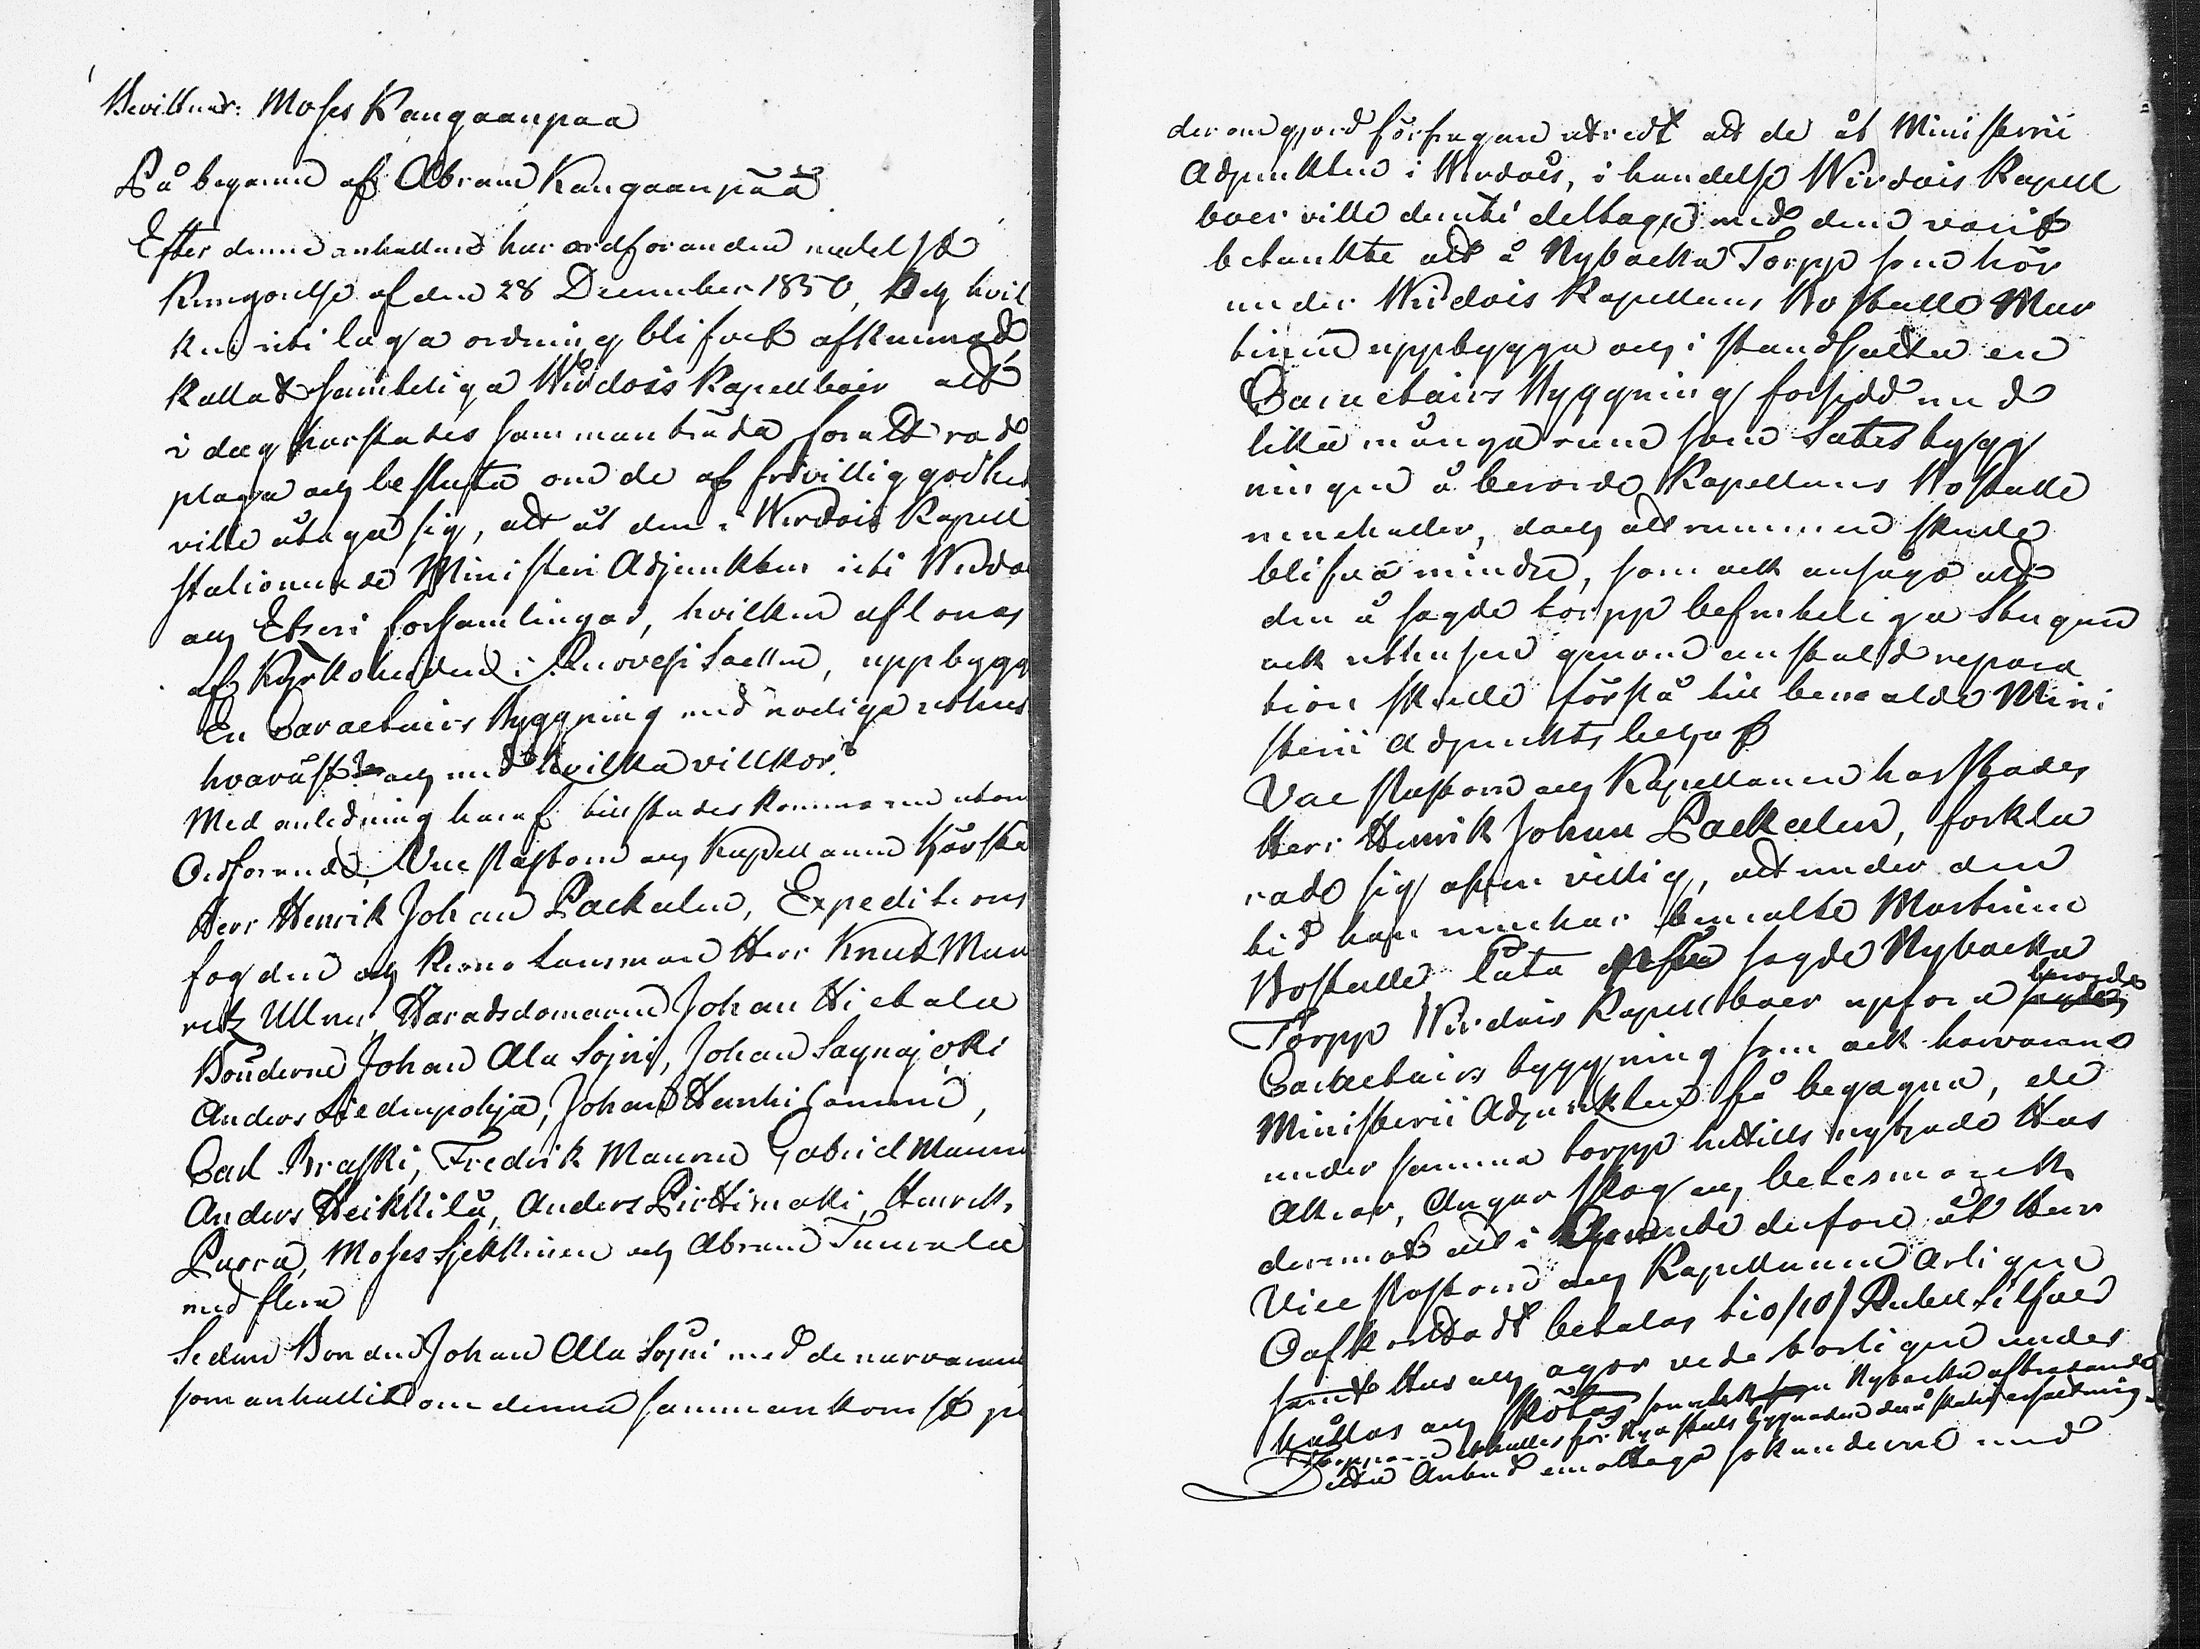 Bevittnar: Moses Kangaanpaa
På begaran af Abram Kangaanpää
Efter derne anhallan har ordforanden medelst
Kungorelse af den 28 December 1850, Och hvil
ken uti laga ordning blifvit afkunnad
kallat samteliga Wirdois Kapellboer att
i dag harstades sammantrada for att råd
plaga och besluta om de af frivillig godhet
ville åtaga sig, att åt den i Wirdois Kapell
stationerade Ministeri Adjunkten uti Wirdo
och Etseri forsamlingar, hvilken aflonas
af Kyrkoherden i Ruovesi Socken, uppbygga
En Caractairs Byggning med nodiga uthus
hvaråst? och med hvilka villkor?
Med anledning haraf tillstades kommo utom
Ordforande, Vice Pastorn och Kapellanen härsta
Herr Henrik Johan Packalen, Expeditions
fogden och Krono Lansman Herr Knut Mau
ritz Ullner, Haradsdomaren Johan Hietala
Bönderne Johan Ala Sojni, Johan Saynajoki
Anders Liedenpohja, Johan Hanhisammi,
Carl Braski, Fredrik Maunu Gabriel Maunu
Anders Heikkilä, Anders Pirttimaki, Henrik
Purra, Moses Sjekkinen och Abram Tumala
med flera
Sedan Bonden Johan Ala Sojni med de narvarande
som anhallit om denna sammankomst på
derom gjord förfrågan utredt att de åt Ministerii
Adjunkten i Wirdois, i handelse Wirdois Kapell
boer ville deruti deltaga med dem varit
betankte att å Nybacka Torpp som hör
under Wirdois Kapellans Bostalle Mar
tinin uppbygga och i standsatta en
Caractairs Byggning forsedd med
lika många rum som Sates bygg
ningen å berorde Kapellans Bostalle
innehaller, doch att rummen skulle
blifva mindre, som ock ansågo att
den å sagde torpp befinteliga Stugan
ock uthusen genom anstald repara
tion skulle förslå till bemalde Mini
sterii Adjunkts behof
Vice Pastorn och Kapellanen harstades
Herr Henrik Johan Packalen, forkla
rade sig afven villig, att under den
tid han innehar bemalte Martinin
Bostalle låta å sagde Nybacka
Torpp Wirdois Kapellboer upfora berorde
Caractairs byggning som ock harvarande
Ministerii Adjunkten få begagna, de
under samma torpp hittills nyttjade Hus
Åkrar, Angar Skog och betesmarck
deremot att i Arende derfore åt Herr
Vice Pastorn och Kapellanen arligen
Oafkortadt betalas tio /10/ Rubel Silfver
samt Hus och agor vederborligen under
hållas och skötas som ock Nybacka aftradande
Torppare erhaller för Nya stuls byggnaden derå skalig ersattning.
Detta Anbud emottoga sokanderne med